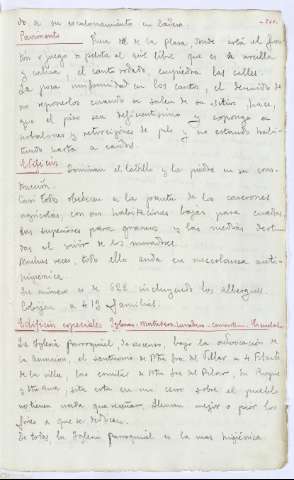 do, a su escalonamiento en ladera.
Pavimento. Fuera de la plaza, donde está el fron
tón o juego a pelota al aire libre que es de arcilla
y caliza, el canto rodado empiedra las calles.
La poca uniformidad en los cantos, el descuido de
no reponerlos cuando se salen de su sitio, hace,
que el piso sea deficientísimo y exponga a
resbalones y retorsiones de pie y no estando habi-
tuado hasta a caidas.
Edificios. Dominan el ladrillo y la piedra en su cons-
trucción.
Casi todos obedecen a la pauta de los caserones
agrícolas, con sus habitaciones bajas para cuadras,
las superiores para graneros y las medias destina
das al vivir de los moradores.
Muchas veces, todo ello anda en mezcolanza anti-
higienica.
Su número es de 522 incluyendo los albergues.
Cobijan a 413 familias.
Edificios especiales. Iglesias - Mataderos - Lavaderos - Cementerio - Escuelas
La Iglesia parroquial, de ascenso, bajo la advocación de
la Asunción, el santuario de Ntra Sra. del Villar a 4 Kilomts
de la villa, las ermitas de Ntra Sra. del Pilar, S. Roque
y Sta Ana, sita esta en un cerro sobre el pueblo
no tienen nada que reseñar, llenan mejor o peor los
fines a que se dedican.
De todas la Iglesia Parroquial es la mas higiénica